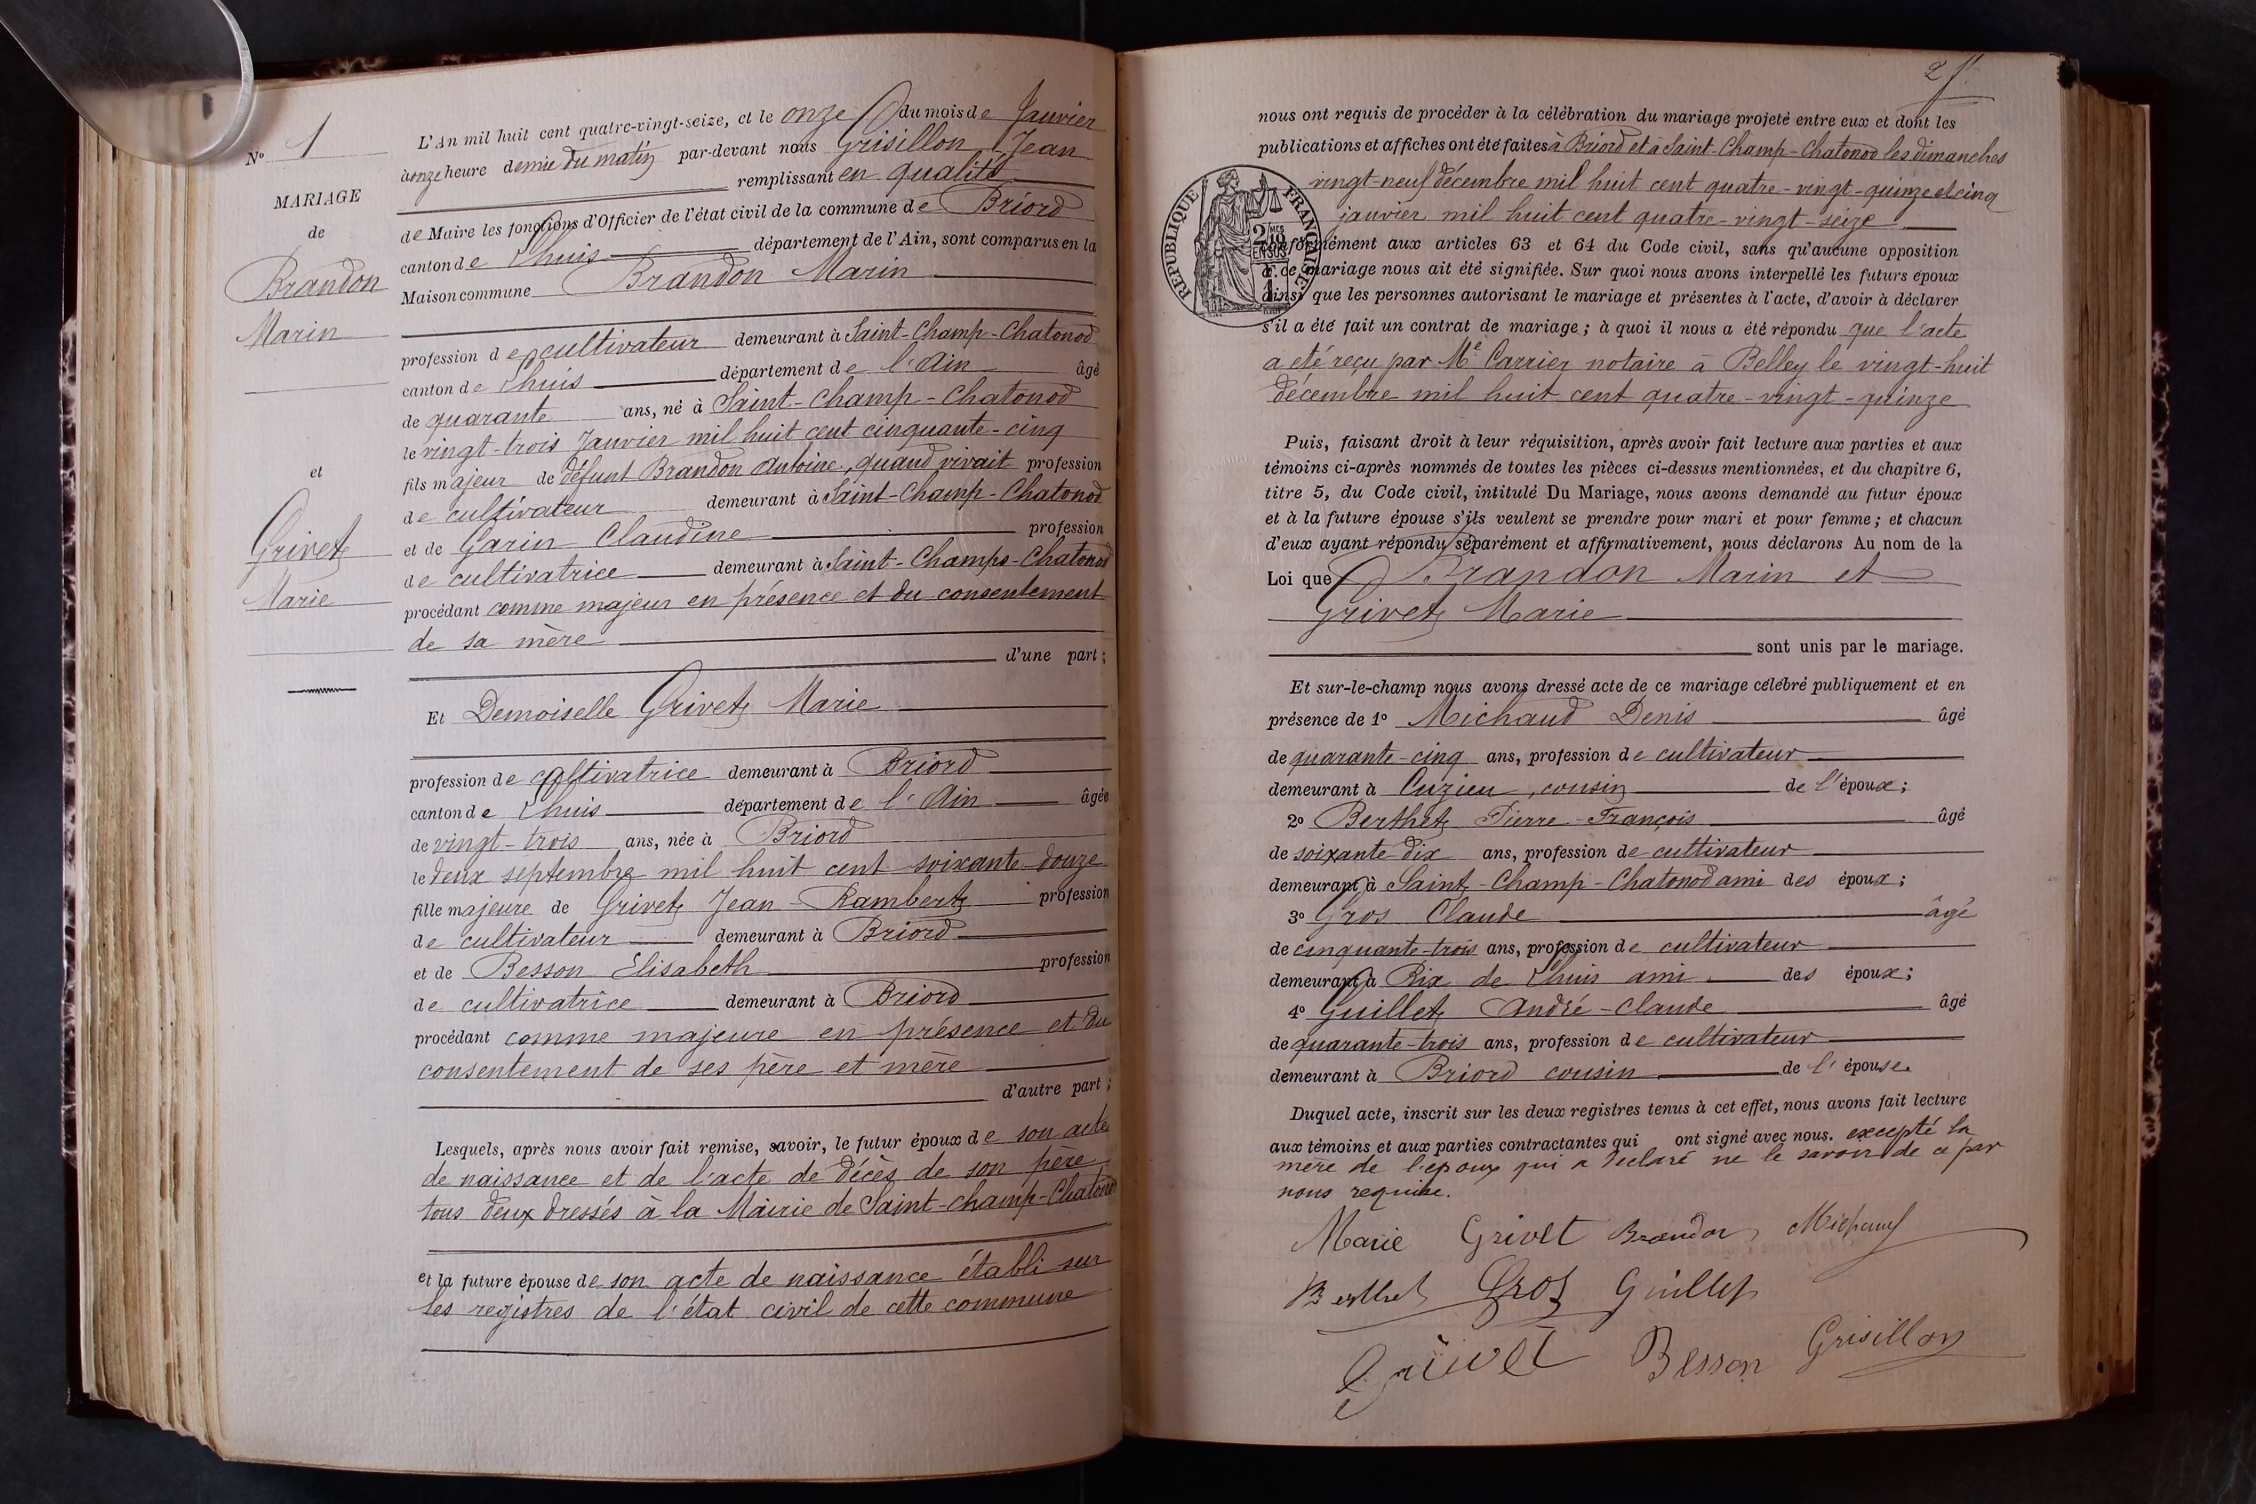 N° 1
MARIAGE
de
Brandon
Marin
et
Grivet
Marie
L'An mil huit cent quatre-vingt-seize, et le onze du mois de Janvier
à onze heure demie du matin par-devant nous Grisillon Jean
remplissant en qualité
de Maire les fonctions d'Officier de l'état civil de la commune de Briord
canton de Lhuis département de l'Ain, sont comparus en la
Maison commune Brandon Marin
profession de cultivateur demeurant à Saint-Champ-Chatonod
canton de Lhuis département de l'Ain âgé
de quarante ans, né à Saint-Champ-Chatonod
le vingt-trois Janvier mil huit cent cinquante-cinq
fils majeur de défunt Brandon Antoine, quand vivait profession
de cultivateur demeurant à Saint-Champ-Chatonod
et de Garin Claudine profession
de cultivatrice demeurant à Saint-Champs-Chatonod
procédant comme majeur en présence et du consentement
de sa mère
d'une part;
Et Demoiselle Grivet Marie
profession de cultivatrice demeurant à Briord
canton de Lhuis département de l'Ain âgée
de vingt-trois ans, née à Briord
le deux septembre mil huit cent soixante-douze
fille majeure de Grivet Jean-Rambert profession
de cultivateur demeurant à Briord
et de Besson Elisabeth profession
de cultivatrice demeurant à Briord
procédant comme majeure en présence et du
consentement de ses père et mère
d'autre part;
Lesquels, après nous avoir fait remise, savoir, le futur époux de son acte
de naissance et de l'acte de décès de son père
tous deux dressés à la Mairie de Saint-Champ-Chatonod
et la future épouse de son acte de naissance établi sur
les registres de l'état civil de cette commune
2
nous ont requis de procéder à la célébration du mariage projeté entre eux et dont les
publications et affiches ont été faites à Briord et à Saint-Champ-Chatonod les dimanches
vingt-neuf décembre mil huit cent quatre-vingt-quinze et cinq
janvier mil huit cent quatre-vingt-seize
RÉPUBLIQUE FRANÇAISE
conformément aux articles 63 et 64 du Code civil, sans qu'aucune opposition
à ce mariage nous ait été signifiée. Sur quoi nous avons interpellé les futurs époux
ainsi que les personnes autorisant le mariage et présentes à l'acte, d'avoir à déclarer
s'il a été fait un contrat de mariage; à quoi il nous a été répondu que l'acte
a eté reçu par Me Carrier notaire à Belley le vingt-huit
décembre mil huit cent quatre-vingt-quinze
Puis, faisant droit à leur réquisition, après avoir fait lecture aux parties et aux
témoins ci-après nommés de toutes les pièces ci-dessus mentionnées, et du chapitre 6,
titre 5, du Code civil, intitulé Du Mariage, nous avons demandé au futur époux
et à la future épouse s'ils veulent se prendre pour mari et pour femme; et chacun
d'eux ayant répondu séparément et affirmativement, nous déclarons Au nom de la
Loi que Brandon Marin et
Grivet Marie
sont unis par le mariage.
Et sur-le-champ nous avons dressé acte de ce mariage célébré publiquement et en
présence de 1° Michaud Denis âgé
de quarante-cinq ans, profession de cultivateur
demeurant à Cuzieu, cousin de l'époux;
2° Berthet Pierre-François âgé
de soixante-dix ans, profession de cultivateur
demeurant à Saint-Champ-Chatonod ami des époux;
3° Gros Claude âgé
de cinquante-trois ans, profession de cultivateur
demeurant à Rix de Lhuis ami des époux;
4° Guillet André-Claude âgé
de quarante-trois ans, profession de cultivateur
demeurant à Briord cousin de l'épouse.
Duquel acte, inscrit sur les deux registres tenus à cet effet, nous avons fait lecture
aux témoins et aux parties contractantes qui ont signé avec nous. excepté la
mère de l'époux qui a déclaré ne le savoir de ce par
nous requise.
Marie Grivet Brandon Michaud
Berthet Gros Guillet
Grivet Besson Grisillon